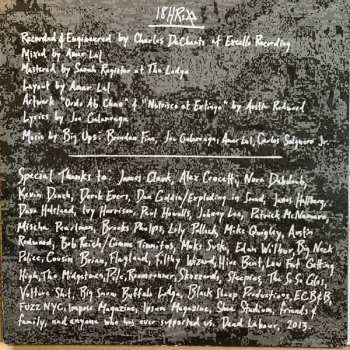 18HRX
Recorded & Engineered by Charles DeChants at Excello Recording
Mixed by Amar Lal
Mastered by Sarah Register at The Lodge
Layout by Amar Lal
Artwork "Ordo Ab Chao" & "Nutrisco et Extingo" by Austin Redwood
Lyrics by Joe Galarraga
Music by Big Ups: Brendan Finn, Joe Galarraga, Amar Lal, Carlos Salguero Jr.
Special Thanks to: James Clark, Alex Crocetti, Nora Dabdoub,
Kevin Douch, Derek Evers, Dan Goldin/Exploding in Sound, James Hallberg,
Dave Halstead, Ivy Harrison, Paul Howells, Johnny Leo, Patrick McNamara,
Mischa Pearlman, Brooks Phelps, Lily Pollack, Mike Quigley, Austin
Redwood, Bob Reich/Gimme Tinnitus, Maks Suski, Edan Wilber, Big Neck
Police, Cousin Brian, Flagland, Filthy Wizard, Hive Bent, Low Fat Getting
High, The Midgetmen, Pile, Roomrunner, Shizzards, Sleepies, The So So Glos,
Vulture Shit, Big Snow Buffalo Lodge, Black Sheep Productions, ECB&B,
FUZZ NYC, Impose Magazine, Ipsum Magazine, Shea Stadium, friends &
family, and anyone who has ever supported us. Dead Labour, 2013.